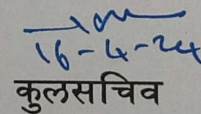 16-4-24
कुलसचिव